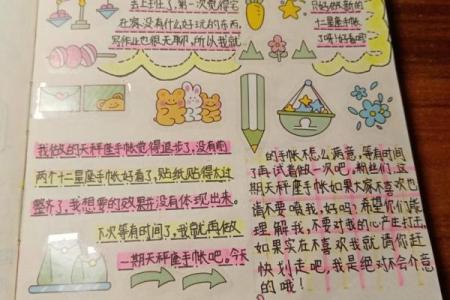 去上班了，第一次觉得它
在家没有什么好玩的东西，
写作业也很无聊，所以我就
只好做新的
十二星座手帐
了呀！好看吗？
我做的天秤座手帐觉得退步了，没有前
两个十二星座手帐好看了，贴纸贴得太过
整齐了，我想要的效果并没有体现出来。
下次等有时间了，我就再做
一期天秤座手帐吧。今天
的手帐不怎么满意，等有时间
了再试着做一次吧，粉丝们，这
期天秤座手帐如果大家不喜欢也
请不要喷我，好吗？希望你们能
理解我，不要对我的心产生打击，
如果实在不喜欢我就请你赶
快划走吧，我是绝对不会介意
的哦！